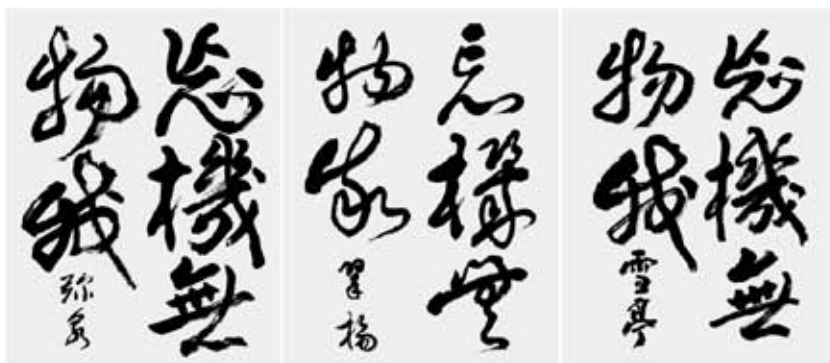 忘機無
物我
忘機無
物我
翠楊
忘機無
物我
雪亭